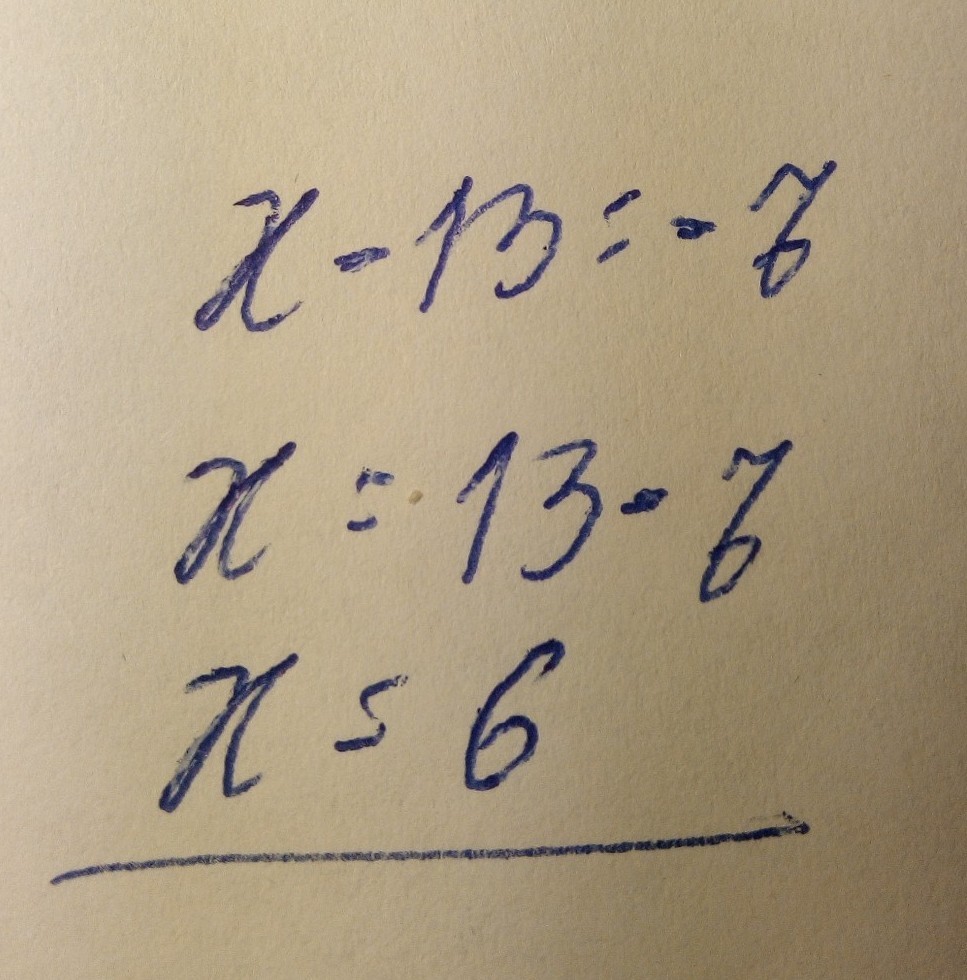 x - 13 = - 7
x = 13 - 7
x = 6